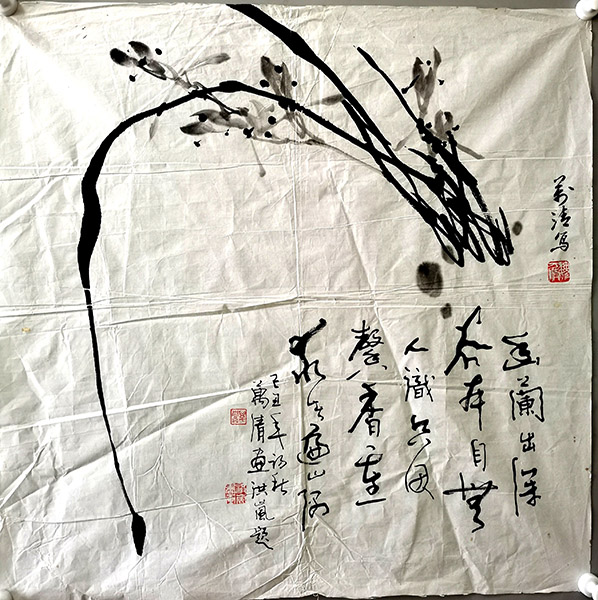 萬清写
幽蘭出深
谷本自無
人識只因
馨香重
求者遍山隅
己丑年初秋
萬清画洪嵐题